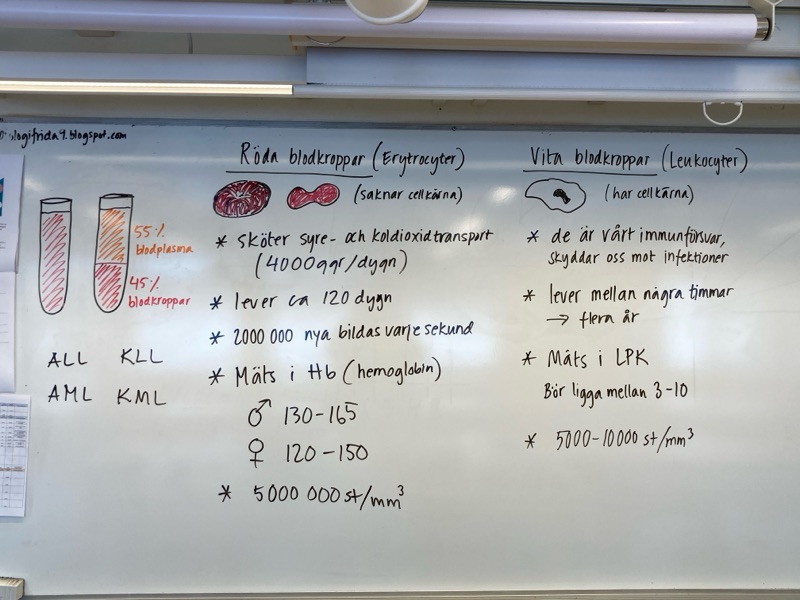 logifrida9.blogspot.com
55%
blodplasma
45%
blodkroppar
ALL KLL
AML KML
Röda blodkroppar (Erytrocyter)
(saknar cellkärna)
* sköter syre- och koldioxidtransport
(4000ggr/dygn)
* lever ca 120 dygn
* 2000 000 nya bildas varje sekund
* Mäts i Hb (hemoglobin)
♂ 130-165
♀ 120-150
* 5000 000 st/mm³
Vita blodkroppar (Leukocyter)
(har cellkärna)
* de är vårt immunförsvar,
skyddar oss mot infektioner
* lever mellan några timmar
→ flera år
* Mäts i LPK
Bör ligga mellan 3-10
* 5000-10000 st/mm³